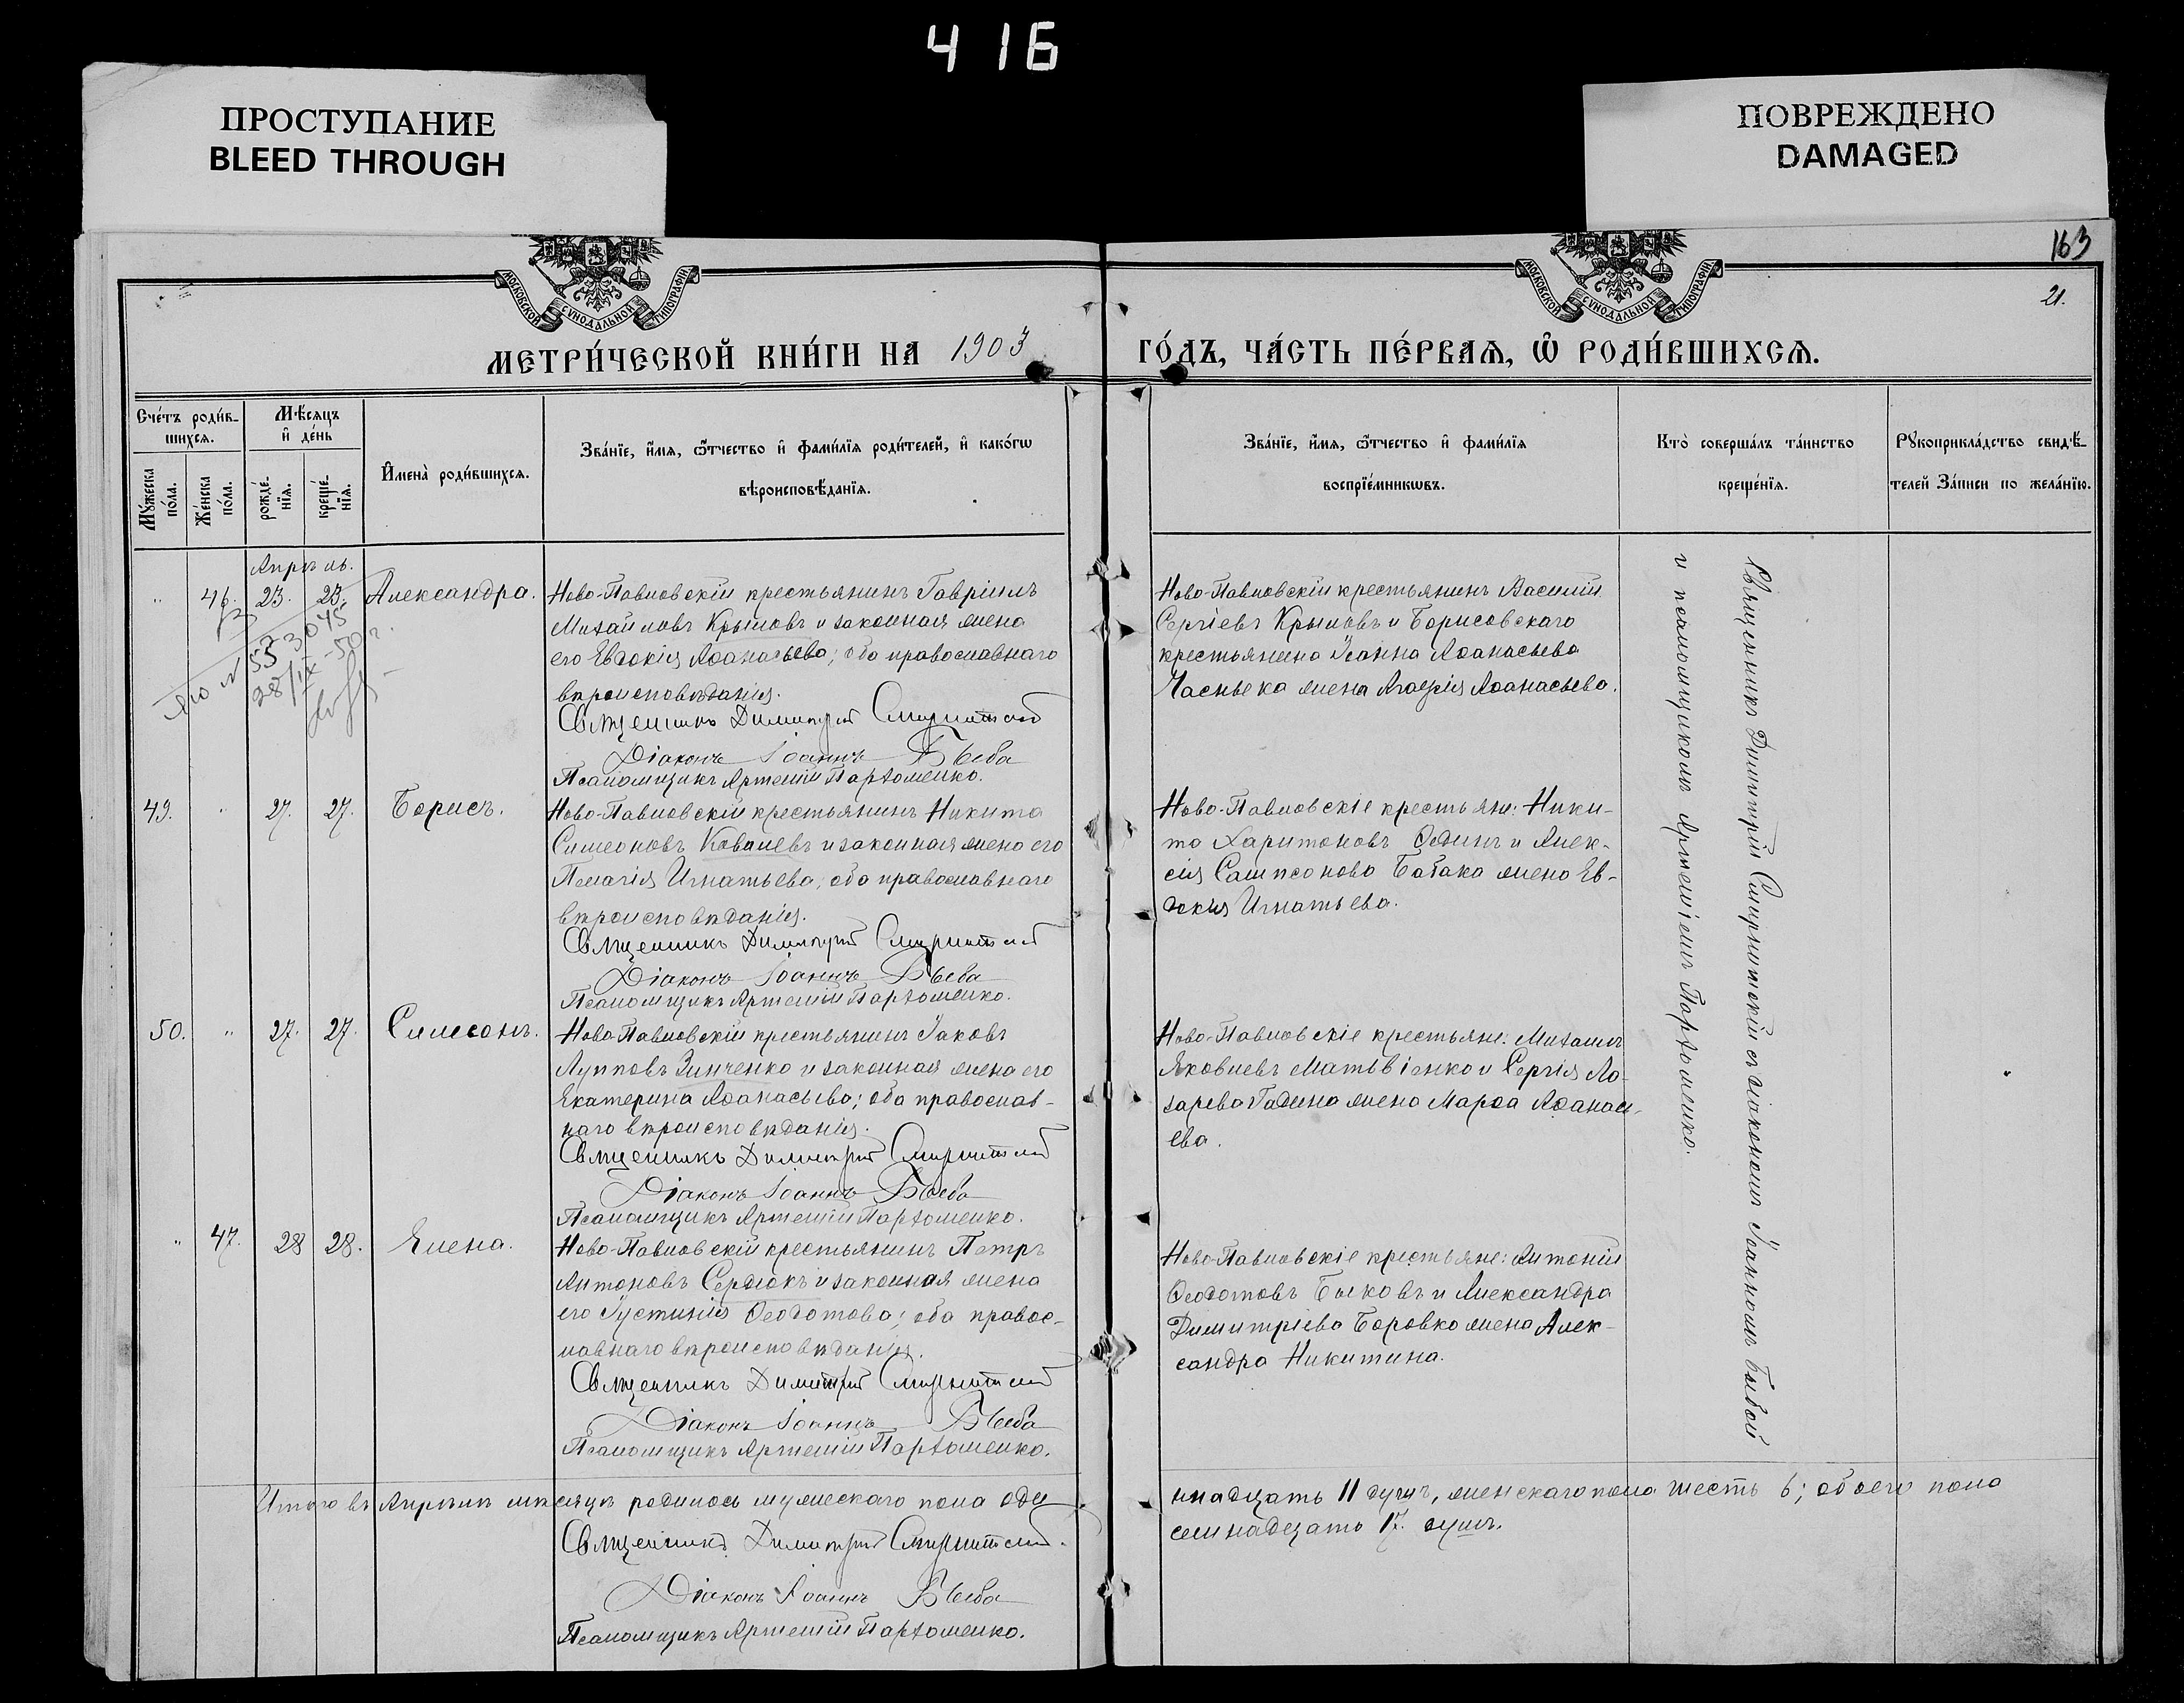 416
ПРОСТУПАНИЕ
BLEED THROUGH
ПОВРЕЖДЕНО
DAMAGED
163
21.
МОСКОВСКОЙ СѴНОДАЛЬНОЙ ТИПОГРАФІИ
МОСКОВСКОЙ СѴНОДАЛЬНОЙ ТИПОГРАФІИ
МЕТРИ́ЧЕСКОЙ КНИ́ГИ НА 1903 ГО́ДЪ, ЧА́СТЬ ПЕ́РВАЯ, Ѿ РОДИ́ВШИХСЯ.
Сче́тъ роди́в-
шихся.
Мꙋжеска по́ла.
Же́нска по́ла.
Мѣ́сяцъ
и҆ де́нь
рожде́-
нїя.
креще́-
нїя.
И҆мена̀ роди́вшихся.
Зва́нїе, и҆́мя, ѻ҆́тчество и҆ фами́лїя роди́телей, и҆ како́гѡ
вѣроисповѣ́данїя.
Зва́нїе, и҆́мя, ѻ҆́тчество и҆ фами́лїя
воспрїе́мникѡвъ.
Кто̀ соверша́лъ та́инство
креще́нїя.
Рꙋкоприкла́дство свидѣ́-
телей За́писи по жела́нїю.
Апрѣль.
" 46. 23. 23. Александра.
Ново-Павловскій крестьянинъ Гавріилъ
Михайловъ Крыловъ и законная жена
его Евдокія Аѳанасьева; оба православнаго
вѣроисповѣданія.
Священникъ Димитрій Смирнитскій
Діаконъ Іоаннъ
Псаломщикъ Артемій Пархоменко.
Ново-Павловскій крестьянинъ Василій
Сергіевъ Крыловъ и Борисовскаго
крестьянина Іоанна Аѳанасьева
жена Аѳанасьева.
28/IX-50г.
49. " 27. 27. Борисъ.
Ново-Павловскій крестьянинъ Никита
Симеоновъ Ковалевъ и законная жена его
Пелагія Игнатьева; оба православнаго
вѣроисповѣданія.
Священникъ Димитрій Смирнитскій
Діаконъ Іоаннъ
Псаломщикъ Артемій Пархоменко.
Ново-Павловскіе крестьяне: Ники-
та Харитоновъ и Алек-
сія Сампсонова Бабака жена Ев-
докія Игнатьева.
50. " 27. 27. Симеонъ.
Ново-Павловскій крестьянинъ Іаковъ
Лупповъ Зинченко и законная жена его
Екатерина Аѳанасьева; оба православ-
наго вѣроисповѣданія.
Священникъ Димитрій Смирнитскій
Діаконъ Іоаннъ
Псаломщикъ Артемій Пархоменко.
Ново-Павловскіе крестьяне: Михаилъ
Яковлевъ Матвіенко и Сергія Ла-
зарева жена Марѳа Аѳанась-
ева.
" 47. 28 28. Елена.
Ново-Павловскій крестьянинъ Петръ
Антоновъ Сердюкъ и законная жена
его Іустинія Ѳеодотова; оба правос-
лавнаго вѣроисповѣданія.
Священникъ Димитрій Смирнитскій
Діаконъ Іоаннъ
Псаломщикъ Артемій Пархоменко.
Ново-Павловскіе крестьяне: Антоній
Ѳеодотовъ Быковъ и Александра
Димитріева Боровко жена Алек-
сандра Никитина.
Священникъ Димитрій Смирнитскій съ діакономъ Іоанномъ
и псаломщикомъ Артеміемъ Пархоменко.
Итого въ Апрѣлѣ мѣсяцѣ родилось мужескаго пола оди
ннадцать 11 душъ, женскаго пола шесть 6; обоего пола
семнадцать 17. душъ.
Священникъ Димитрій Смирнитскій.
Діаконъ Іоаннъ
Псаломщикъ Артемій Пархоменко.